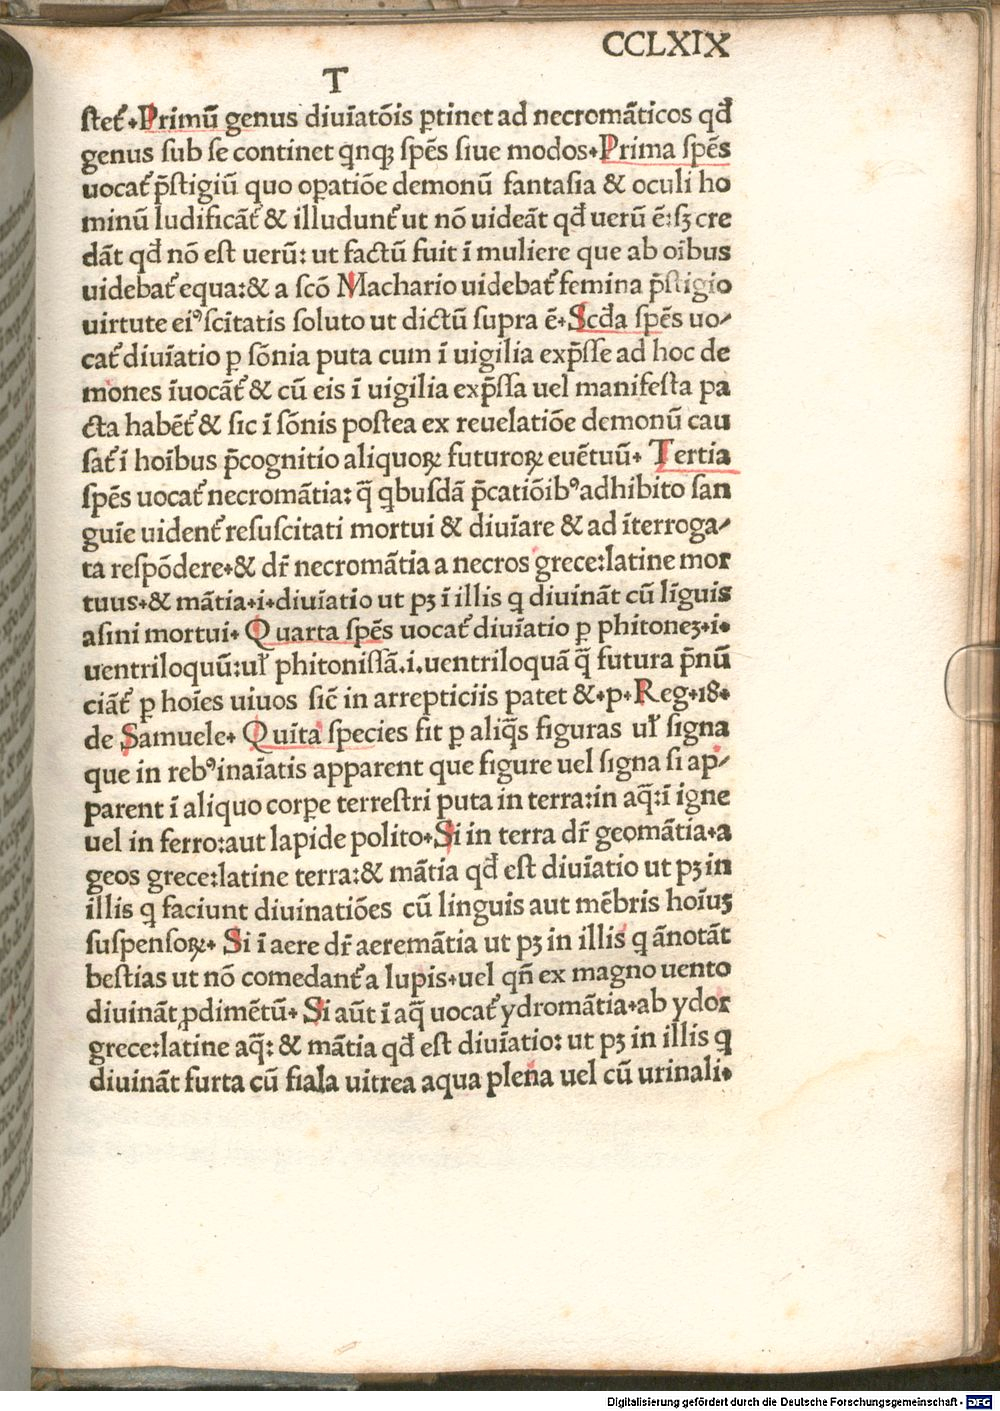 CCLXIX
T
ſtet᷑.Primū genus diuīatōis ꝑtinet ad necromāticos qđ
genus ſub ſe continet qnqꝫ ſpēs ſiue modos.Prima ſpēs
uocat᷑ p̄ſtigiū quo oꝑatiōe demonū fantaſia & oculi ho
minū ludificāt᷑ & illudunt᷑ ut nō uideāt qđ uerū ē:ſꝫ cre
dāt qđ nō eſt uerū: ut factū fuit ī muliere que ab oībus
uidebat᷑ equa:& a ſcō Machario uidebat᷑ femina p̄ſtigio
uirtute eiꝰ ſcitatis ſoluto ut dictū ſupra ē.Scđa ſpēs uo⸗
cat᷑ diuīatio ꝑ ſōnia puta cum ī uigilia exp̄ſſe ad hoc de
mones īuocāt᷑ & cū eis ī uigilia exp̄ſſa uel manifeſta pa
cta habēt᷑ & ſic ī ſōnis poſtea ex reuelatiōe demonū cau
ſat᷑ ī hoībus p̄cognitio aliquoꝝ futuroꝝ euētuū. Tertia
ſpēs uocat᷑ necromātia: q̄ qbuſdā p̄catiōibꝰ adhibito ſan
guīe uident᷑ reſuſcitati mortui & diuīare & ad īterroga⸗
ta reſpōdere.& dr̄ necromātia a necros grece:latine mor
tuus.& mātia.i.diuīatio ut pꝫ ī illis q diuināt cū līguis
aſini mortui. Quarta ſpēs uocat᷑ diuīatio ꝑ phitoneꝫ.i.
uentriloquū:uł phitoniſſā.i.uentriloquā q̄ futura p̄nū
ciāt᷑ ꝑ hoīes uiuos ſic̄ in arrepticiis patet &.p.Reg.18.
de Samuele. Quīta ſpecies fit ꝑ aliq̄s figuras uł ſigna
que in rebꝰ inaīatis apparent que figure uel ſigna ſi ap⸗
parent ī aliquo corꝑe terreſtri puta in terra:in aq̄:ī igne
uel in ferro:aut lapide polito.Si in terra dr̄ geomātia.a
geos grece:latine terra:& mātia qđ eſt diuīatio ut pꝫ in
illis q faciunt diuinatiōes cū linguis aut mēbris hoīuꝫ
ſuſpenſoꝝ. Si ī aere dr̄ aeremātia ut pꝫ in illis q ānotāt
beſtias ut nō comedant᷑ a lupis.uel qn̄ ex magno uento
diuināt ꝓdimētū. Si aūt ī aq̄ uocat᷑ ydromātia.ab ydor
grece:latine aq̄: & mātia qđ eſt diuīatio: ut pꝫ in illis q
diuināt furta cū fiala uitrea aqua plena uel cū urinali.
Digitalisierung gefördert durch die Deutsche Forschungsgemeinschaft - DFG